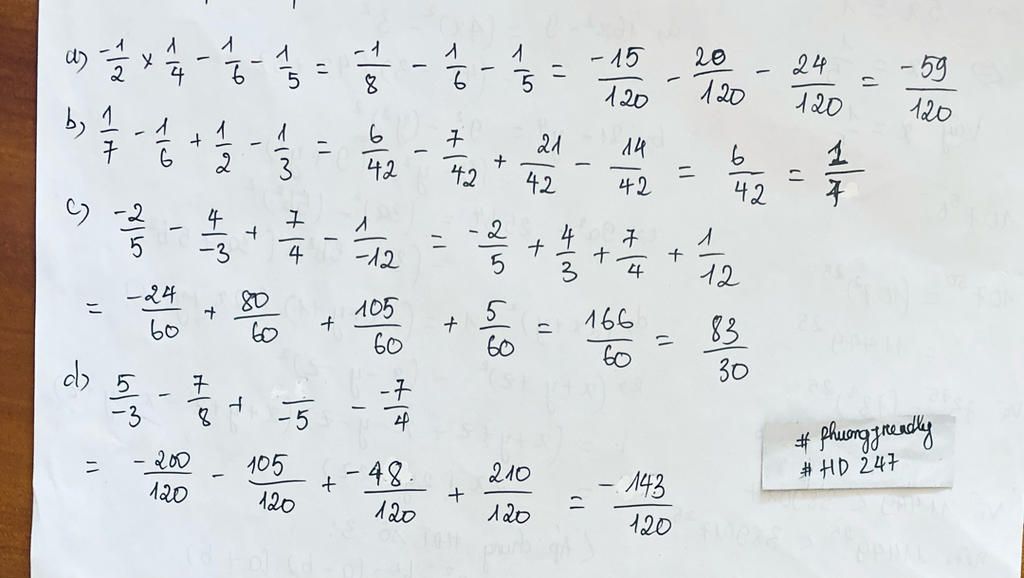 a) -1/2 × 1/4 - 1/6 - 1/5 = -1/8 - 1/6 - 1/5 = -15/120 - 20/120 - 24/120 = -59/120
b) 1/7 - 1/6 + 1/2 - 1/3 = 6/42 - 7/42 + 21/42 - 14/42 = 6/42 = 1/7
c) -2/5 - 4/-3 + 7/4 - 1/-12 = -2/5 + 4/3 + 7/4 + 1/12
= -24/60 + 80/60 + 105/60 + 5/60 = 166/60 = 83/30
d) 5/-3 - 7/8 + /-5 - -7/4
= -200/120 - 105/120 + -48/120 + 210/120 = -143/120
# HD 247